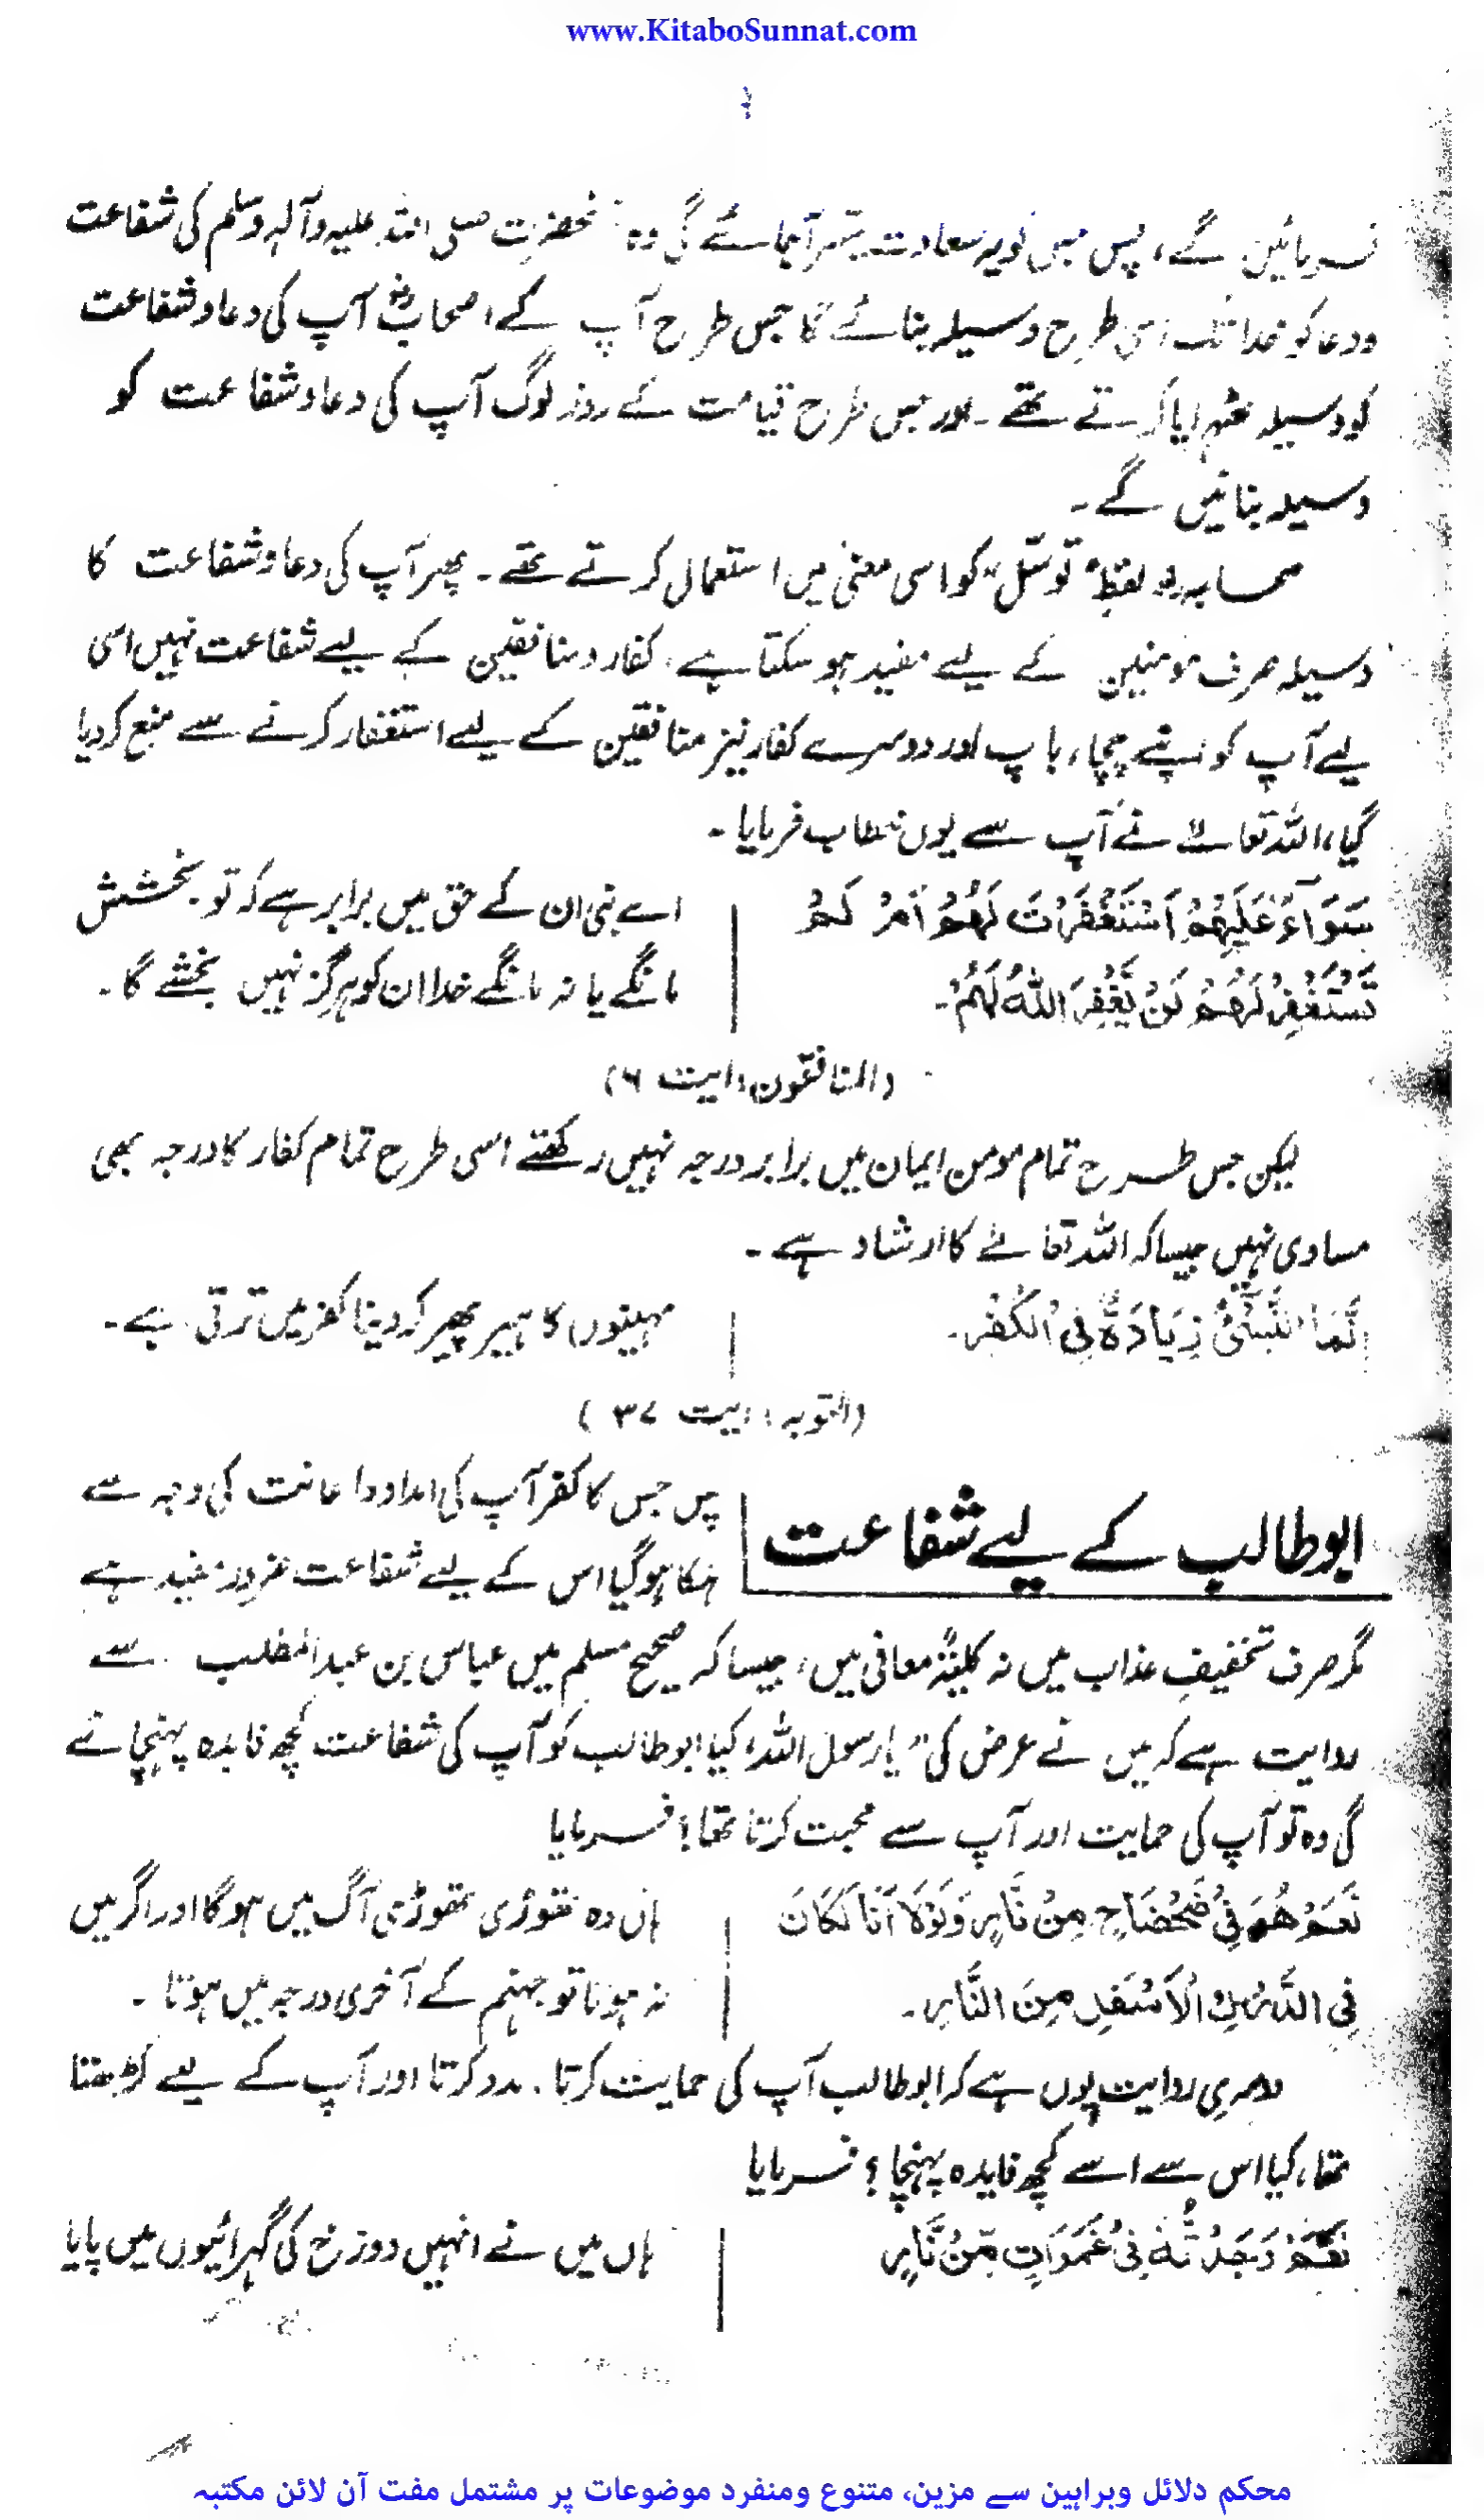 www.KitaboSunnat.com
فرمائیں گے، پس جس کو یہ سعادت میسر آجائے گی وہ آنحضرت صلی اللہ علیہ وآلہ وسلم کی شفاعت
ودعا کو خدا تک اسی طرح وسیلہ بنائے گا جس طرح آپ کے اصحابؓ آپ کی دعا و شفاعت
کو وسیلہ ٹھہرایا کرتے تھے ۔ اور جس طرح قیامت کے روز لوگ آپ کی دعا و شفاعت کو
وسیلہ بنائیں گے ۔
صحابہؓ لفظ "توسّل" کو اسی معنیٰ میں استعمال کرتے تھے ۔ پھر آپ کی دعا و شفاعت کا
وسیلہ صرف مومنین کے لیے مفید ہو سکتا ہے، کفار و منافقین کے لیے شفاعت نہیں اسی
لیے آپ کو اپنے چچا، باپ اور دوسرے کفار نیز منافقین کے لیے استغفار کرنے سے منع کر دیا
گیا، اللہ تعالےٰ نے آپ سے یوں خطاب فرمایا ۔
سَوَآءٌ عَلَيْهِمْ اَسْتَغْفَرْتَ لَهُمْ اَمْ لَمْ
تَسْتَغْفِرْ لَهُمْ لَنْ يَّغْفِرَ اللهُ لَهُمْ ۔
اے نبی ان کے حق میں برابر ہے کہ تو بخشش
مانگے یا نہ مانگے خدا ان کو ہرگز نہیں بخشے گا ۔
(المنافقون : ایت ۶)
لیکن جس طرح تمام مومن ایمان میں برابر درجہ نہیں رکھتے اسی طرح تمام کفار کا درجہ بھی
مساوی نہیں جیسا کہ اللہ تعالےٰ کا ارشاد ہے ۔
اِنَّمَا النَّسِیْٓءُ زِیَادَةٌ فِی الْکُفْرِ ۔
مہینوں کا ہیر پھیر کر دینا کفر میں ترقی ہے ۔
(التوبہ : ایت ۳۷)
ابو طالب کے لیے شفاعت
پس جس کا کفر آپ کی امداد و اعانت کی وجہ سے
ہلکا ہو گیا اس کے لیے شفاعت ضرور مفید ہے
مگر صرف تخفیفِ عذاب میں نہ کلیۃً معافی میں، جیسا کہ صحیح مسلم میں عباس بن عبدالمطلب سے
روایت ہے کہ میں نے عرض کی "یا رسول اللہ، کیا ابو طالب کو آپ کی شفاعت کچھ فایدہ پہنچائے
گی وہ تو آپ کی حمایت اور آپ سے محبت کرتا تھا؟ فرمایا
نَعَمْ هُوَ فِیْ ضَحْضَاحٍ مِنْ نَّارٍ وَلَوْلَا اَنَا لَکَانَ
فِی الدَّرْكِ الْاَسْفَلِ مِنَ النَّارِ ۔
ہاں وہ تھوڑی تھوڑی آگ میں ہوگا اور اگر میں
نہ ہوتا تو جہنم کے آخری درجہ میں ہوتا ۔
دوسری روایت یوں ہے کہ ابو طالب آپ کی حمایت کرتا، مدد کرتا اور آپ کے لیے لڑ بھتا
تھا، کیا اس سے اسے کچھ فایدہ پہنچا؟ فرمایا
نَعَمْ وَجَدْتُّهٗ فِیْ غَمَرَاتٍ مِّنْ نَّارٍ
ہاں میں نے انہیں دوزخ کی گہرائیوں میں پایا
محکم دلائل وبراہین سے مزین، متنوع ومنفرد موضوعات پر مشتمل مفت آن لائن مکتبہ